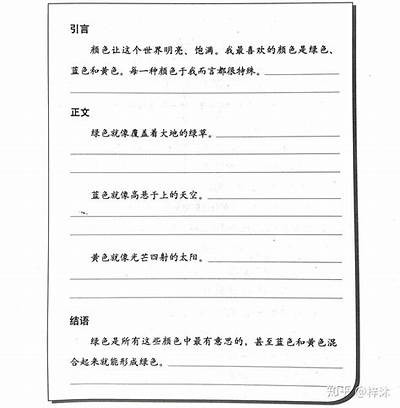 引言
颜色让这个世界明亮、饱满。我最喜欢的颜色是绿色、
蓝色和黄色。每一种颜色于我而言都很特殊。
正文
绿色就像覆盖着大地的绿草。
蓝色就像高悬于上的天空。
黄色就像光芒四射的太阳。
结语
绿色是所有这些颜色中最有意思的，甚至蓝色和黄色混
合起来就能形成绿色。
知乎 @梓沐